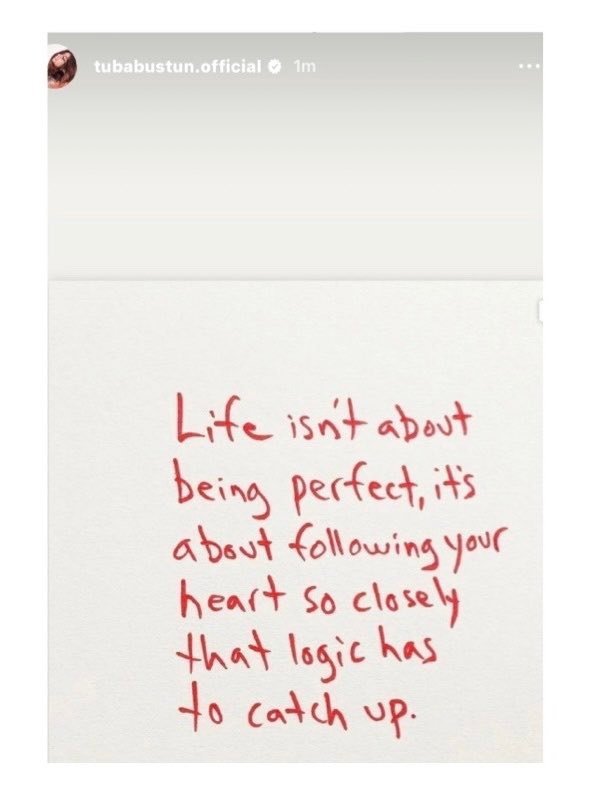 tubabustun.official 1m
Life isn't about
being perfect, it's
about following your
heart so closely
that logic has
to catch up.